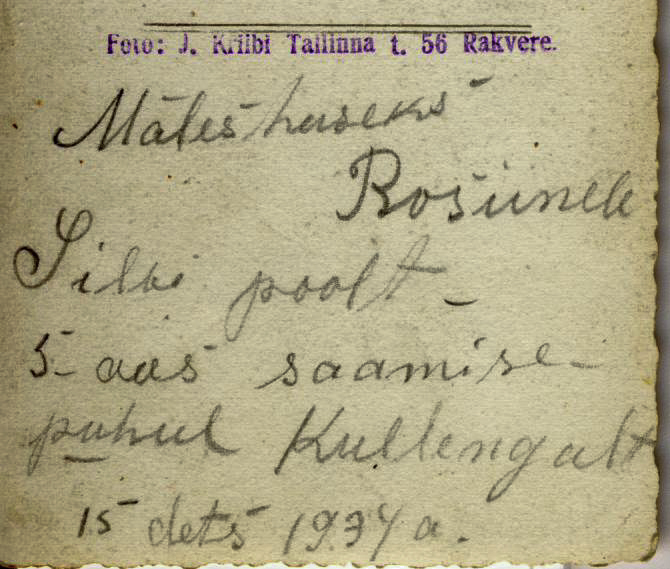 Foto: J. Kriibi Tallinna t. 56 Rakvere.
Mälestuseks
Rosiinele
Silvi poolt
5-aas saamise
puhul Kullengalt
15 dets 1934 a.